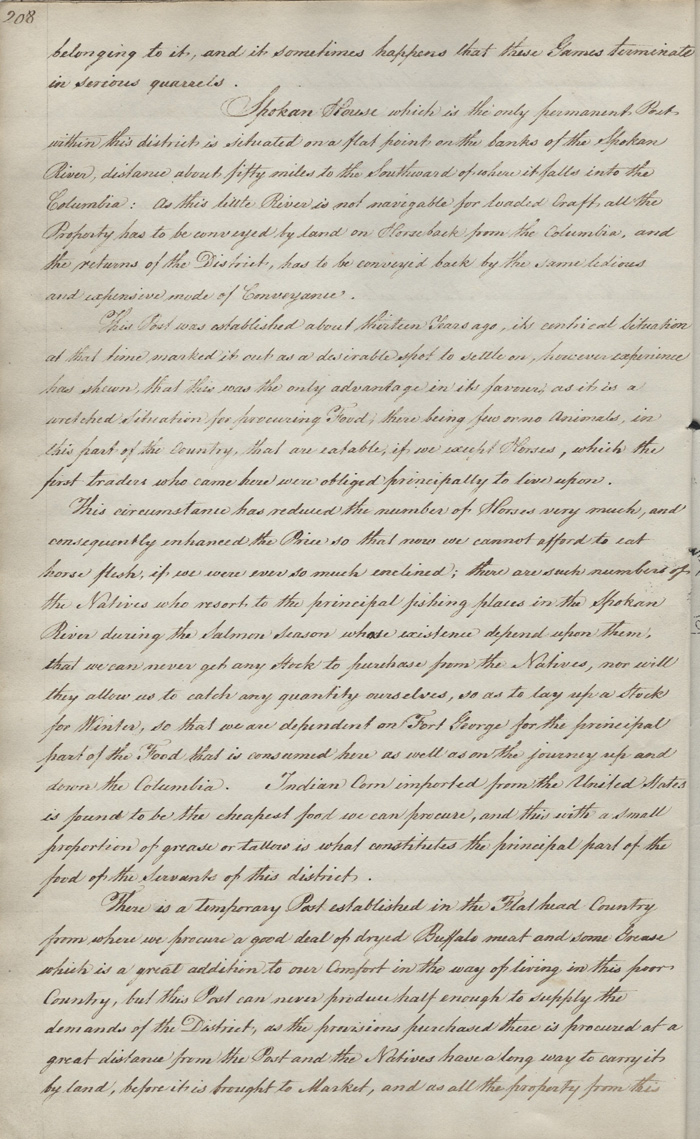 208
belonging to it, and it sometimes happens that these Games terminate
in serious quarrels.
Spokan House which is the only permanent Post
within this district is situated on a flat point on the banks of the Spokan
River, distance about fifty miles to the Southward of where it falls into the
Columbia: As this little River is not navigable for loaded Craft, all the
Property has to be conveyed by land on Horseback from the Columbia, and
the returns of the District, has to be convey'd back by the same tedious
and expensive mode of Conveyance.
This Post was established about thirteen Years ago, its centrical Situation
at that time marked it out as a desirable spot to settle on, however experience
has shewn, that this was the only advantage in its favour, as it is a
wretched Situation for procuring Food, there being few or no Animals, in
this part of the Country, that are eatable, if we except Horses, which the
first traders who came here were obliged principally to live upon.
This circumstance has reduced the number of Horses very much, and
consequently enhanced the Price so that now we cannot afford to eat
horse flesh, if we were ever so much enclined; there are such numbers of
the Natives who resort to the principal fishing places in the Spokan
River during the Salmon Season whose existence depend upon them,
that we can never get any Stock to purchase from the Natives, nor will
they allow us to catch any quantity ourselves, so as to lay up a Stock
for Winter, so that we are dependent on Fort George for the principal
part of the Food that is consumed here as well as on the journey up and
down the Columbia. Indian Corn imported from the United States
is found to be the cheapest food we can procure, and this with a small
proportion of grease or tallow is what constitutes the principal part of the
food of the Servants of this district.
There is a temporary Post established in the Flat head Country
from where we procure a good deal of dryed Buffalo meat and some Grease
which is a great addition to our Comfort in the way of living in this poor
Country, but this Post can never produce half enough to supply the
demands of the District, as the provisions purchased there is procured at a
great distance from the Post and the Natives have a long way to carry it
by land, before it is brought to Market, and as all the property from this